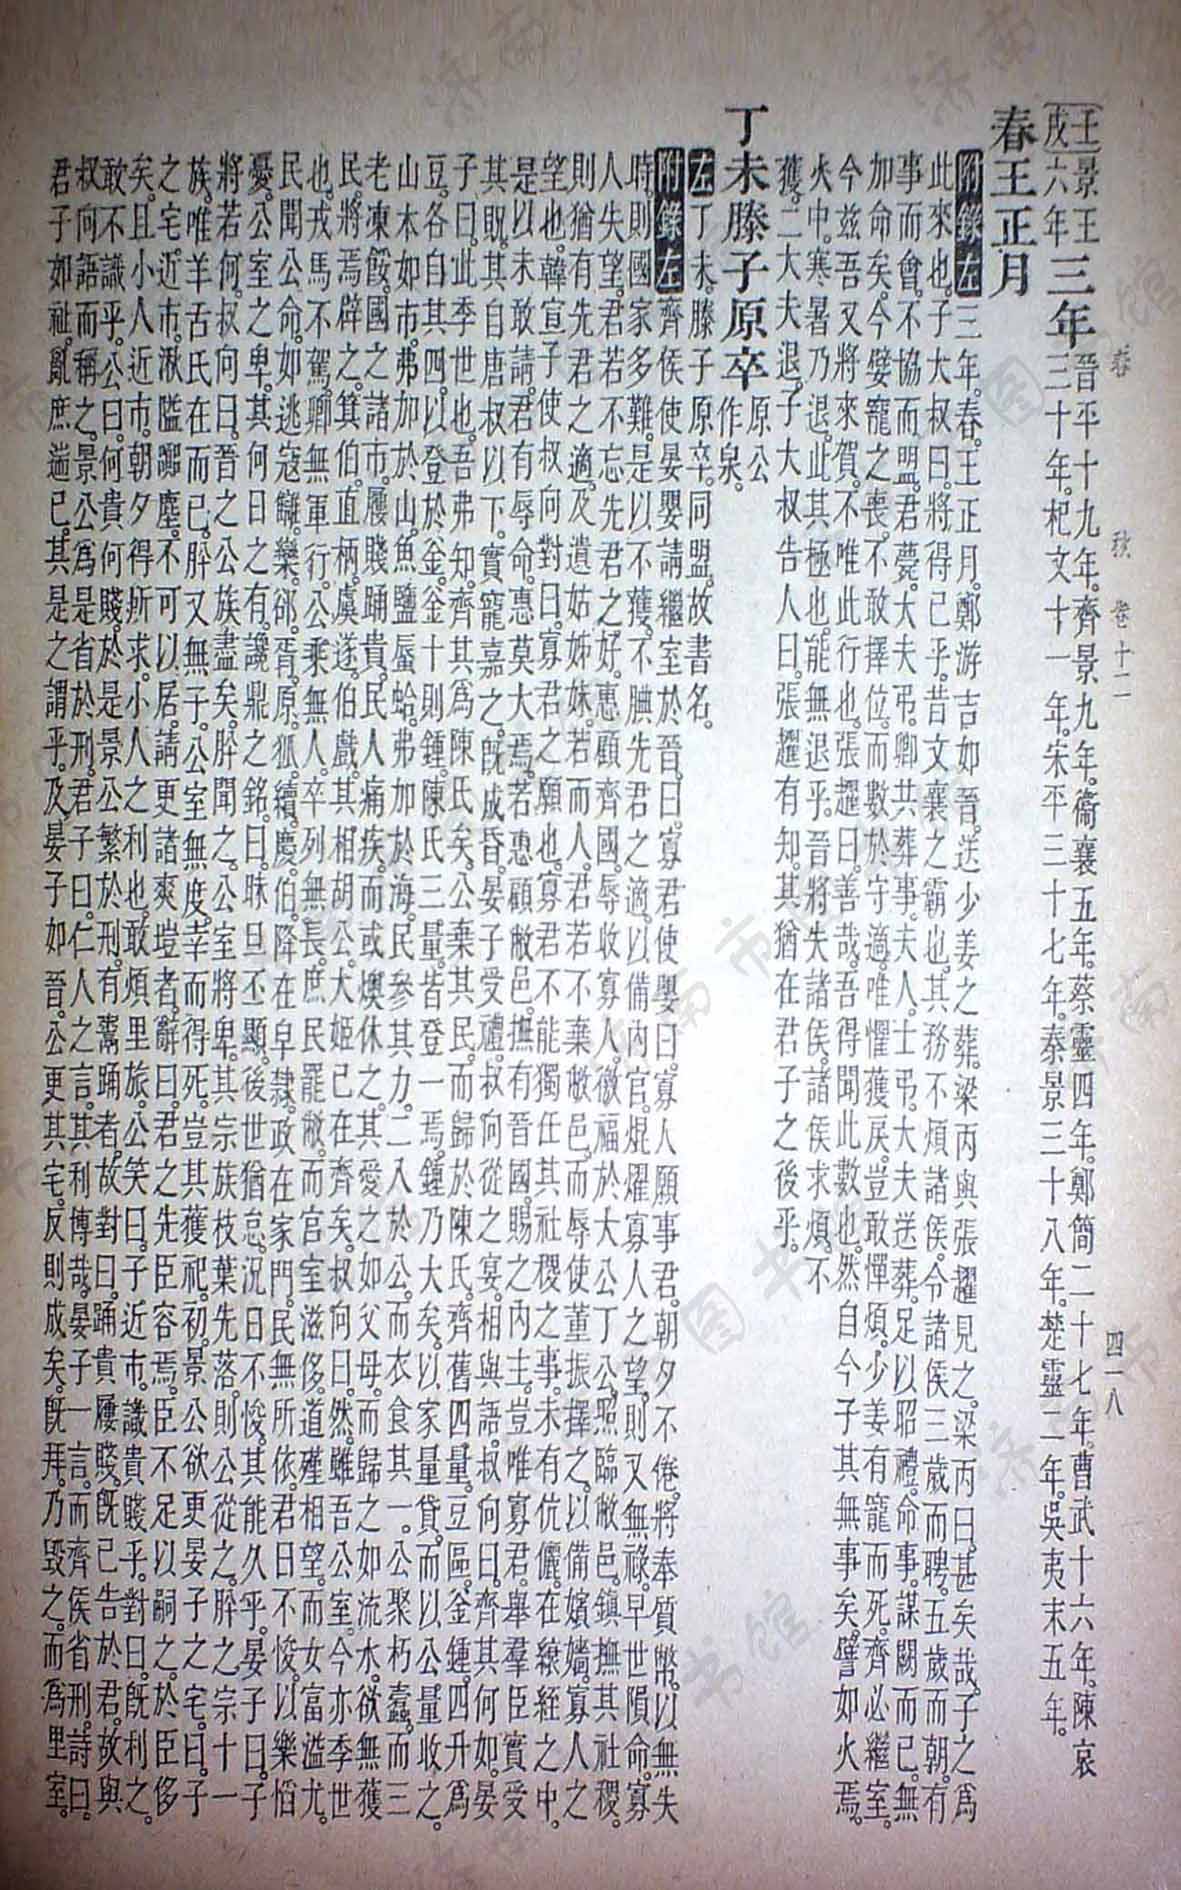 春 秋 卷十二 四一八
壬戌 景王六年 三年 晉平十九年。齊景九年。衞襄五年。蔡靈四年。鄭簡二十七年。曹武十六年。陳哀
三十年。杞文十一年。宋平三十七年。秦景三十八年。楚靈二年。吳夷末五年。
春王正月
附錄左 三年。春。王正月。鄭游吉如晉。送少姜之葬。梁丙與張趯見之。梁丙曰。甚矣哉。子之爲
此來也。子大叔曰。將得已乎。昔文襄之霸也。其務不煩諸侯。令諸侯三歲而聘。五歲而朝。有
事而會。不協而盟。君薨。大夫弔。卿共葬事。夫人。士弔。大夫送葬。足以昭禮。命事。謀闕而已。無
加命矣。今嬖寵之喪。不敢擇位。而數於守適。唯懼獲戾。豈敢憚煩。少姜有寵而死。齊必繼室。
今兹吾又將來賀。不唯此行也。張趯曰。善哉。吾得聞此數也。然自今子其無事矣。譬如火焉。
火中。寒暑乃退。此其極也。能無退乎。晉將失諸侯。諸侯求煩。不
獲。二大夫退。子大叔告人曰。張趯有知。其猶在君子之後乎。
丁未滕子原卒 原公作泉。
左 丁未。滕子原卒。同盟。故書名。
附錄左 齊侯使晏嬰請繼室於晉。曰。寡君使嬰曰。寡人願事君。朝夕不倦。將奉質幣。以無失
時。則國家多難。是以不獲。不腆先君之適。以備內官。焜燿寡人之望。則又無祿。早世隕命。寡
人失望。君若不忘先君之好。惠顧齊國。辱收寡人。徼福於大公丁公。照臨敝邑。鎮撫其社稷。
則猶有先君之適。及遺姑姊妹。若而人。君若不棄敝邑。而辱使董振擇之。以備嬪嬙。寡人之
望也。韓宣子使叔向對曰。寡君之願也。寡君不能獨任其社稷之事。未有伉儷。在縗絰之中。
是以未敢請。君有辱命。惠莫大焉。若惠顧敝邑。撫有晉國。賜之內主。豈唯寡君。舉羣臣實受
其貺。其自唐叔以下。實寵嘉之。既成昏。晏子受禮。叔向從之宴。相與語。叔向曰。齊其何如。晏
子曰。此季世也。吾弗知。齊其爲陳氏矣。公棄其民。而歸於陳氏。齊舊四量。豆區釜鍾。四升爲
豆。各自其四。以登於釜。釜十則鍾。陳氏三量。皆登一焉。鍾乃大矣。以家量貸。而以公量收之。
山木如市。弗加於山。魚鹽蜃蛤。弗加於海。民參其力。二入於公。而衣食其一。公聚朽蠹。而三
老凍餒。國之諸市。屨賤踊貴。民人痛疾。而或燠休之。其愛之如父母。而歸之如流水。欲無獲
民。將焉辟之。箕伯。直柄。虞遂。伯戲。其相胡公大姬。已在齊矣。叔向曰。然。雖吾公室。今亦季世
也。戎馬不駕。卿無軍行。公乘無人。卒列無長。庶民罷敝。而宮室滋侈。道殣相望。而女富溢尤。
民聞公命。如逃寇讎。欒。郤。胥。原。狐。續。慶。伯。降在皁隸。政在家門。民無所依。君日不悛。以樂慆
憂。公室之卑。其何日之有。讒鼎之銘。曰。昧旦丕顯。後世猶怠。況日不悛。其能久乎。晏子曰。子
將若何。叔向曰。晉之公族盡矣。肸聞之。公室將卑。其宗族枝葉先落。則公從之。肸之宗十一
族。唯羊舌氏在而已。肸又無子。公室無度。幸而得死。豈其獲祀。初。景公欲更晏子之宅。曰。子
之宅近市。湫隘囂塵。不可以居。請更諸爽塏者。辭曰。君之先臣容焉。臣不足以嗣之。於臣侈
矣。且小人近市。朝夕得所求。小人之利也。敢煩里旅。公笑曰。子近市。識貴賤乎。對曰。既利之。
敢不識乎。公曰。何貴何賤。於是景公繁於刑。有鬻踊者。故對曰。踊貴屨賤。既已告於君。故與
叔向語而稱之。景公爲是省於刑。君子曰。仁人之言。其利博哉。晏子一言。而齊侯省刑。詩曰。
君子如祉。亂庶遄已。其是之謂乎。及晏子如晉。公更其宅。反則成矣。既拜。乃毀之。而爲里室。